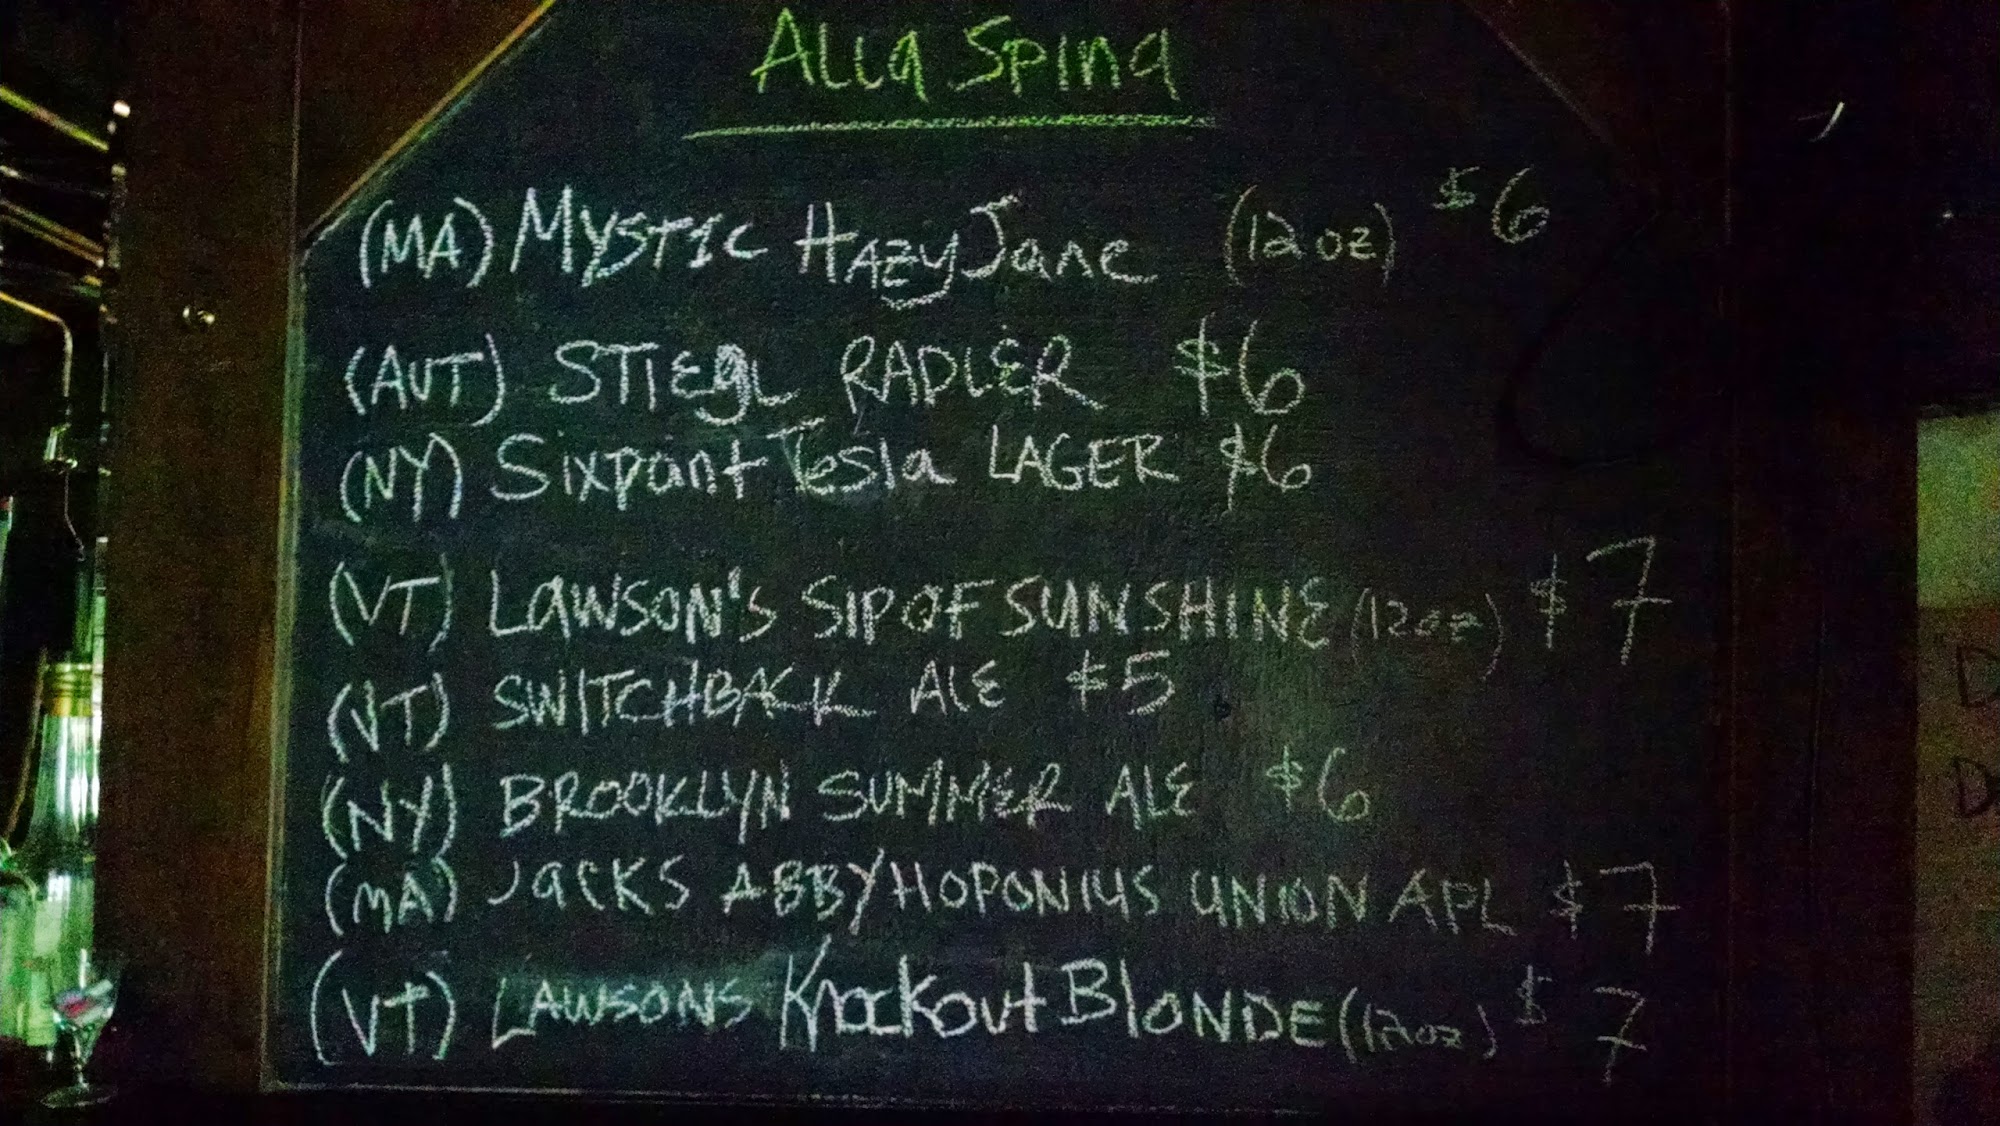 Alla Spina
(MA) Mystic HazyJane (12oz) $6
(AUT) STIEgL RADLER $6
(NY) Sixpoint Tesla LAGER $6
(VT) LAWSON'S SIP OF SUNSHINE (12oz) $7
(VT) SWITCHBACK ALE $5
(NY) BROOKLYN SUMMER ALE $6
(MA) JACKS ABBY HOPONIUS UNION APL $7
(VT) LAWSONS Knockout BLONDE (12oz) $7
D
D